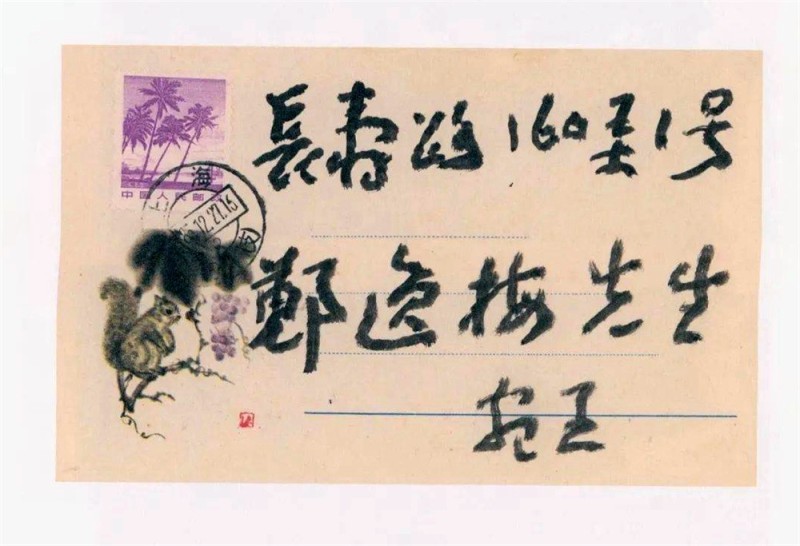 長寿路160弄1号
中国人民邮
上海
12.27.16
鄭逸梅先生
宛王